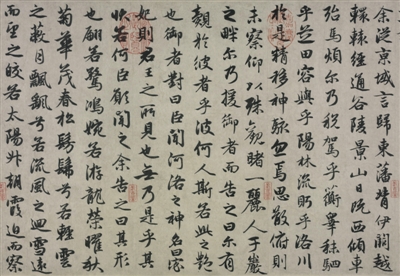 余從京域言歸東藩背伊闕越
轘轅經通谷陵景山日既西傾車
殆馬煩尓乃稅駕乎蘅皋秣駟
乎芝田容與乎陽林流眄乎洛川
於是精移神駭忽焉思散俯則
未察仰以殊觀睹一麗人于巖
之畔尓乃援御者而告之曰尓有
覿於彼者乎彼何人斯若此之艷
也御者對曰臣聞河洛之神名曰宓
妃則君王之所見也無乃是乎其
狀若何臣願聞之余告之曰其形
也翩若驚鴻婉若游龍榮曜秋
菊華茂春松髣髴兮若輕雲
之蔽月飄飄兮若流風之迴雪遠
而望之皎若太陽升朝霞迫而察